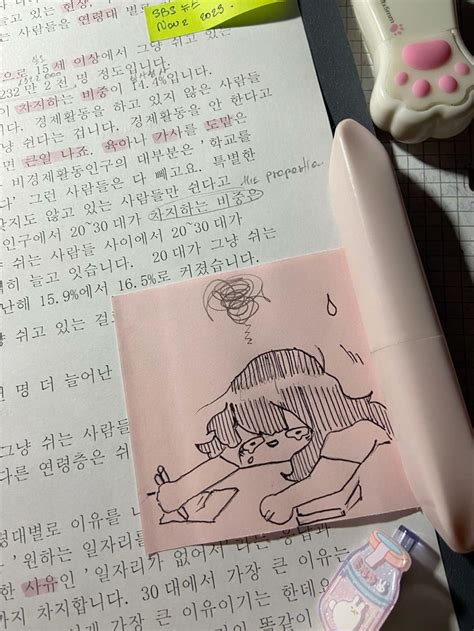 있는 현상.
는 사람들을 연령대 별로
SBS 뉴스
Nov 2 2025.
으로 15세 이상에서 그냥 쉬고 있는
232만 2천 명 정도입니다.
차지하는 비중이 14.4%입니다.
다. 경제활동을 하고 있지 않은 사람들
냥 쉰다는 겁니다. 경제활동을 안 한다고
면 큰일 나죠. 육아나 가사를 도맡은
비경제활동인구의 대부분은 '학교를
다' 그런 사람들은 다 빼고요. 특별한
갖지도 않고 있는 사람들만 쉰다고
the proportion
인구에서 20~30대가 차지하는 비중은
쉬는 사람들 사이에서 20~30대가
히 늘고 있습니다. 20대가 그냥 쉬는
난해 15.9%에서 16.5%로 커졌습니다.
쉬고 있는 걸
명 더 늘어난
그냥 쉬는 사람들
다른 연령층은 쉬
령대별로 이유를 나
'원하는 일자리를
일자리가 없어서'라는 응답과
한 사유인
까지 차지합니다. 30대에서 가장 큰 이유는
가장 큰 이유이기는 한데요
똑같이